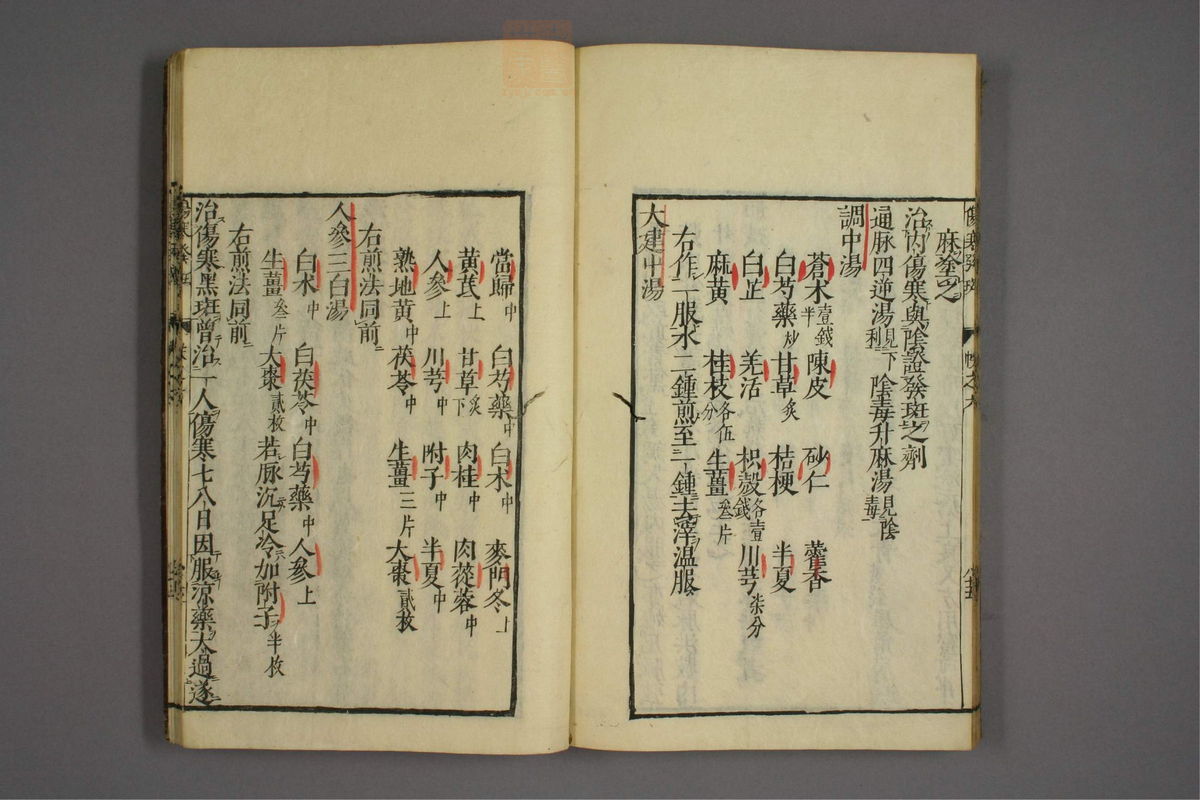 麻筌之
治内傷寒與陰證發斑之劑
通脉四逆湯見下利 陰毒升麻湯見陰毒
調中湯
蒼朮壹錢半 陳皮 砂仁 藿香
白芍藥炒 甘草炙 桔梗 半夏
白芷 羌活 枳殼各壹錢 川芎柒分
麻黄 桂枝各伍分 生薑叁片
右作一服水二鍾煎至一鍾去滓温服
大建中湯
當歸中 白芍藥中 白朮中 麥門冬上
黄芪上 甘草炙下 肉桂中 肉蓯蓉中
人參上 川芎中 附子中 半夏中
熟地黄中 茯苓中 生薑三片 大棗貳枚
右煎法同前
人參三白湯
白朮中 白茯苓中 白芍藥中 人參上
生薑叁片 大棗貳枚 若脉沉足冷加附子半枚
右煎法同前
治傷寒黑斑曾治一人傷寒七八日因服凉藥太過遂